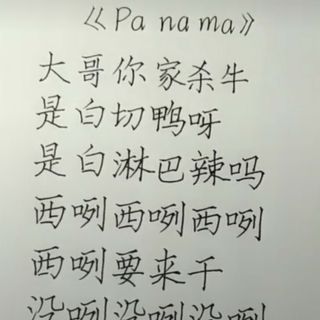 《Panama》
大哥你家杀牛
是白切鸭呀
是白淋巴辣吗
西咧西咧西咧
西咧要来干
没咧没咧没咧